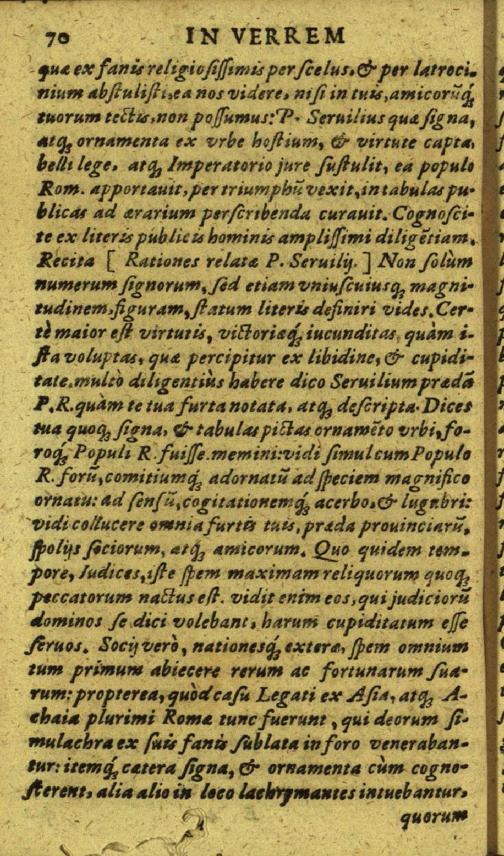 70 IN VERREM
quæ ex fanis religiosissimis per scelus, & per latroci-
nium abstulisti, ea nos videre, nisi in tuis, amicorũq́;
tuorum tectis, non possumus: P. Seruilius quæ signa,
atq; ornamenta ex vrbe hostium, & virtute capta,
belli lege, atq; Imperatorio jure sustulit, ea populo
Rom. apportauit, per triumphũ vexit, in tabulas pu-
blicas ad ærarium perscribenda curauit. Cognosci-
te ex literis publicis hominis amplissimi diligẽtiam.
Recita [ Rationes relatæ P. Seruilij. ] Non solùm
numerum signorum, sed etiam vniuscuiusq; magni-
tudinem, figuram, statum literis definiri vides. Cer-
tè maior est virtutis, victoriæq́; iucunditas, quàm i-
sta voluptas, quæ percipitur ex libidine, & cupidi-
tate. multò diligentiùs habere dico Seruilium prædã
P. R. quàm te tua furta notata, atq; descripta. Dices
tua quoq; signa, & tabulas pictas ornamẽto vrbi, fo-
roq́; Populi R. fuisse. memini: vidi simul cum Populo
R. forũ, comitiumq́; adornatũ ad speciem magnifico
ornatu: ad sensũ, cogitationemq́; acerbo, & lugubri:
vidi collucere omnia furtis tuis, præda prouinciarũ,
spolijs sociorum, atq; amicorum. Quo quidem tem-
pore, Iudices, iste spem maximam reliquorum quoq;
peccatorum nactus est. vidit enim eos, qui judiciorũ
dominos se dici volebant, harum cupiditatum esse
seruos. Socij verò, nationesq́; exteræ, spem omnium
tum primum abiecere rerum ac fortunarum sua-
rum: propterea, quòd casu Legati ex Asia, atq; A-
chaia plurimi Romæ tunc fuerunt, qui deorum si-
mulachra ex suis fanis sublata in foro veneraban-
tur: itemq́; cætera signa, & ornamenta cùm cogno-
sterent, alia alio in loco lachrymantes intuebantur,
quorum